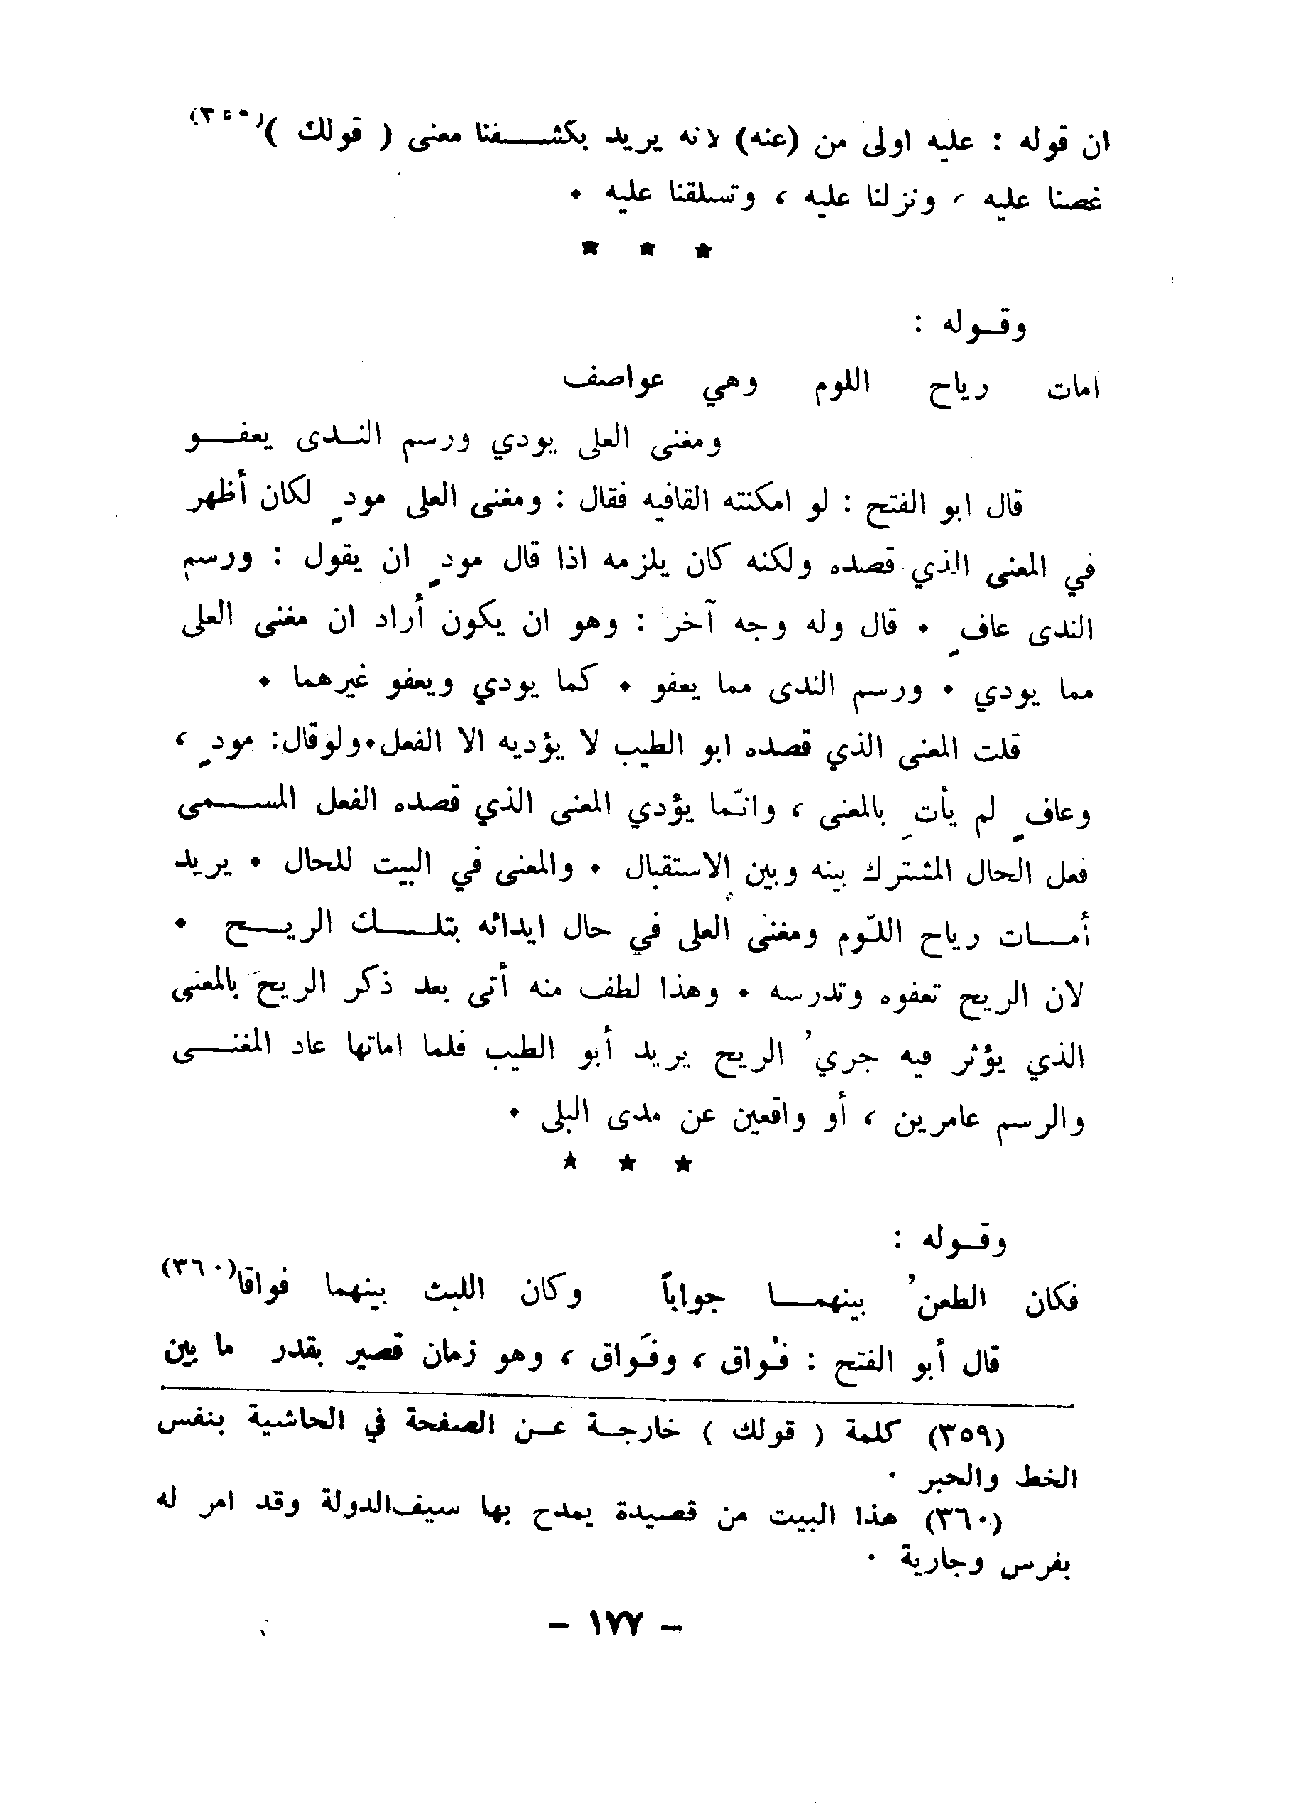 ان قوله : عليه اولى من (عنه) لانه يريد بكشفنا معنى ( قولك )(٣٥٩)
غصنا عليه ، ونزلنا عليه ، وتسلقنا عليه .
* * *
وقوله :
امات رياح اللوم وهي عواصف
ومغنى العلى يودي ورسم الندى يعفو
قال ابو الفتح : لو امكنته القافيه فقال : ومغنى العلى مودٍ لكان أظهر
في المعنى الذي قصده ولكنه كان يلزمه اذا قال مودٍ ان يقول : ورسم
الندى عافٍ . قال وله وجه آخر : وهو ان يكون أراد ان مغنى العلى
مما يودي . ورسم الندى مما يعفو . كما يودي ويعفو غيرهما .
قلت المعنى الذي قصده ابو الطيب لا يؤديه الا الفعل.ولوقال: مودٍ ،
وعافٍ لم يأتِ بالمعنى ، وانّما يؤدي المعنى الذي قصده الفعل المسمى
فعل الحال المشترك بينه وبين الاستقبال . والمعنى في البيت للحال . يريد
أمات رياح اللّوم ومغنى العلى في حال ايدائه بتلك الريح .
لان الريح تعفوه وتدرسه . وهذا لطف منه أتى بعد ذكر الريح بالمعنى
الذي يؤثر فيه جريُ الريح يريد أبو الطيب فلما اماتها عاد المغنى
والرسم عامرين ، أو واقعين عن مدى البلى .
* * *
وقوله :
فكان الطعنُ بينهما جواباً وكان اللبث بينهما فواقا(٣٦٠)
قال أبو الفتح : فُواق ، وفَواق ، وهو زمان قصير بقدر ما بين
(٣٥٩) كلمة ( قولك ) خارجة عن الصفحة في الحاشية بنفس
الخط والحبر .
(٣٦٠) هذا البيت من قصيدة يمدح بها سيف‌الدولة وقد امر له
بفرس وجارية .
– ١٧٧ –